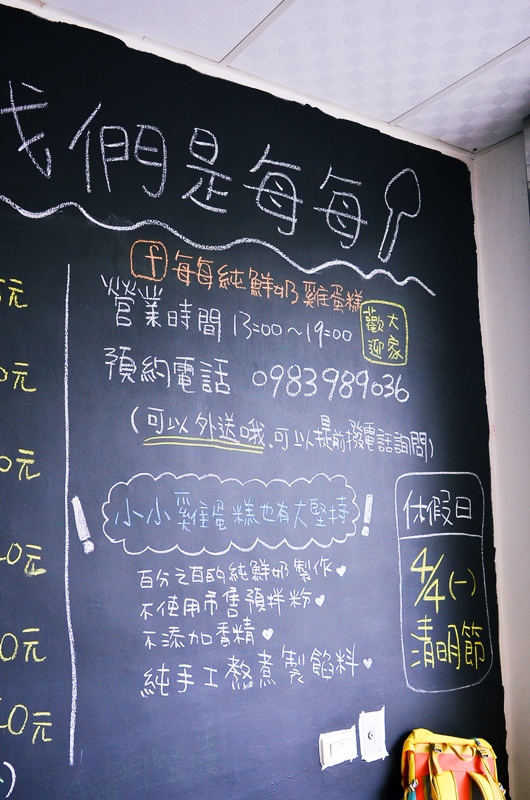 我們是每每
f 每每純鮮奶雞蛋糕
營業時間 13:00~19:00
歡迎大家
預約電話 0983989036
(可以外送哦,可以提前撥電話詢問)
小小雞蛋糕也有大堅持
百分之百的純鮮奶製作♥
不使用市售預拌粉♥
不添加香精♥
純手工熬煮製餡料♥
休假日
4/4(一)
清明節
元
0元
0元
0元
0元
0元
)